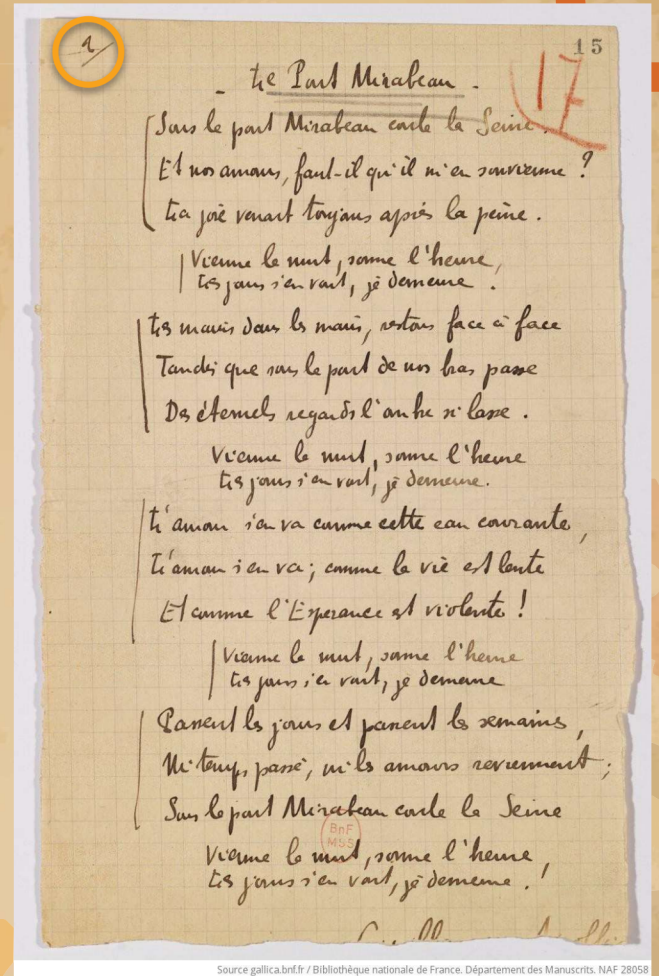 2/
15
17
- Le Pont Mirabeau -
Sous le pont Mirabeau coule la Seine.
Et nos amours, faut-il qu'il m'en souvienne ?
La joie venait toujours après la peine.
Vienne la nuit, sonne l'heure,
Les jours s'en vont, je demeure.
Les mains dans les mains, restons face à face
Tandis que sous le pont de nos bras passe
Des éternels regards l'onde si lasse.
Vienne la nuit, sonne l'heure
Les jours s'en vont, je demeure.
L'amour s'en va comme cette eau courante,
L'amour s'en va ; comme la vie est lente
Et comme l'Espérance est violente !
Vienne la nuit, sonne l'heure
Les jours s'en vont, je demeure
Passent les jours et passent les semaines,
Ni temps passé, ni les amours reviennent ;
Sous le pont Mirabeau coule la Seine
BnF
MSS
Vienne la nuit, sonne l'heure,
Les jours s'en vont, je demeure.!
Source gallica.bnf.fr / Bibliothèque nationale de France. Département des Manuscrits. NAF 28058